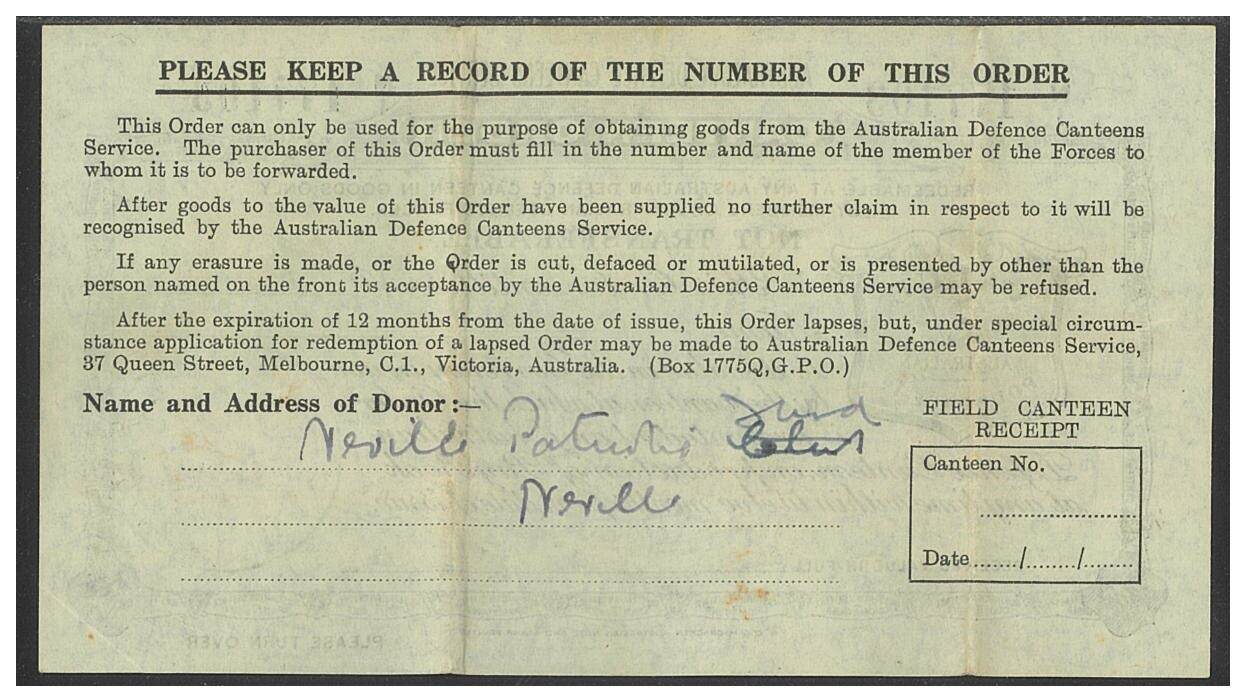 PLEASE KEEP A RECORD OF THE NUMBER OF THIS ORDER
This Order can only be used for the purpose of obtaining goods from the Australian Defence Canteens
Service. The purchaser of this Order must fill in the number and name of the member of the Forces to
whom it is to be forwarded.
After goods to the value of this Order have been supplied no further claim in respect to it will be
recognised by the Australian Defence Canteens Service.
If any erasure is made, or the Order is cut, defaced or mutilated, or is presented by other than the
person named on the front its acceptance by the Australian Defence Canteens Service may be refused.
After the expiration of 12 months from the date of issue, this Order lapses, but, under special circum-
stance application for redemption of a lapsed Order may be made to Australian Defence Canteens Service,
37 Queen Street, Melbourne, C.1., Victoria, Australia. (Box 1775Q,G.P.O.)
Name and Address of Donor :—
Fund
Neville Patriotic
Neville
FIELD CANTEEN
RECEIPT
Canteen No.
Date ......./......../........
PLEASE TURN OVER